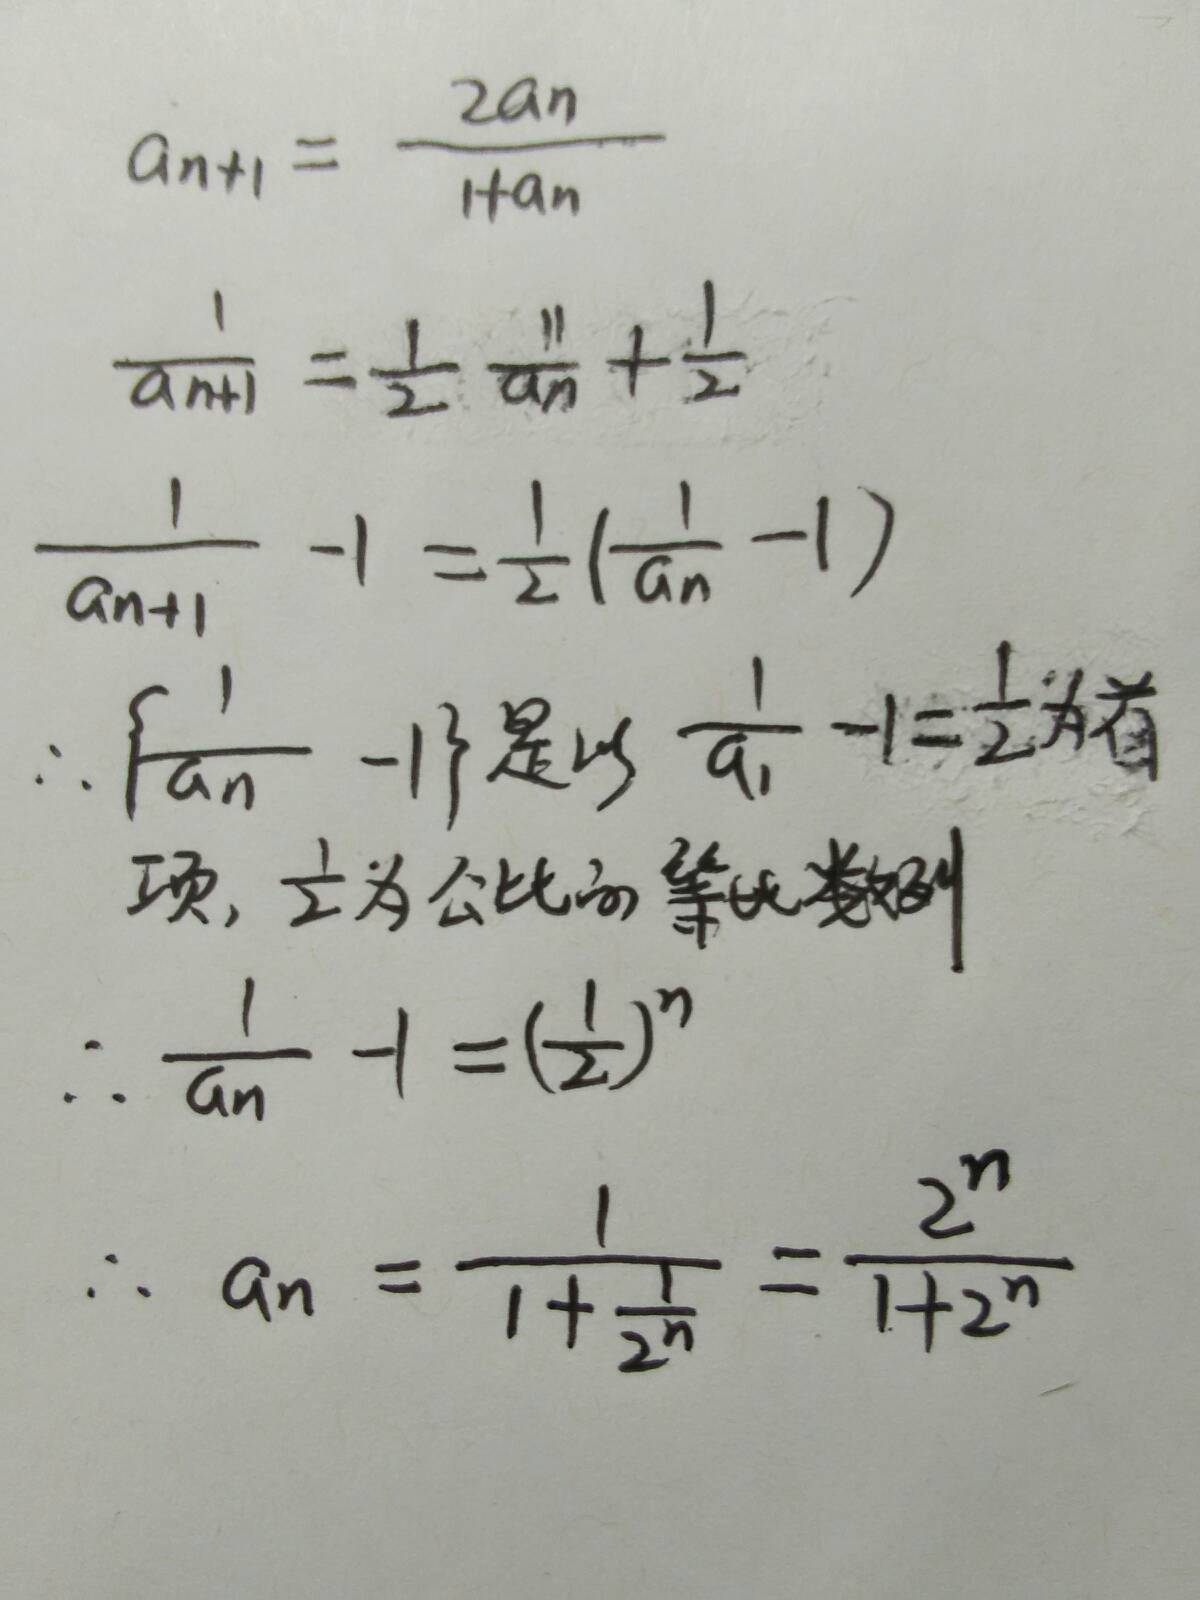 aₙ₊₁ = 2aₙ / (1+aₙ)
1/aₙ₊₁ = 1/2 1/aₙ + 1/2
1/aₙ₊₁ -1 = 1/2 (1/aₙ -1)
∴ {1/aₙ -1} 是以 1/a₁ -1 = 1/2 为首
项, 1/2 为公比的等比数列
∴ 1/aₙ -1 = (1/2)ⁿ
∴ aₙ = 1/(1 + 1/2ⁿ) = 2ⁿ/(1+2ⁿ)